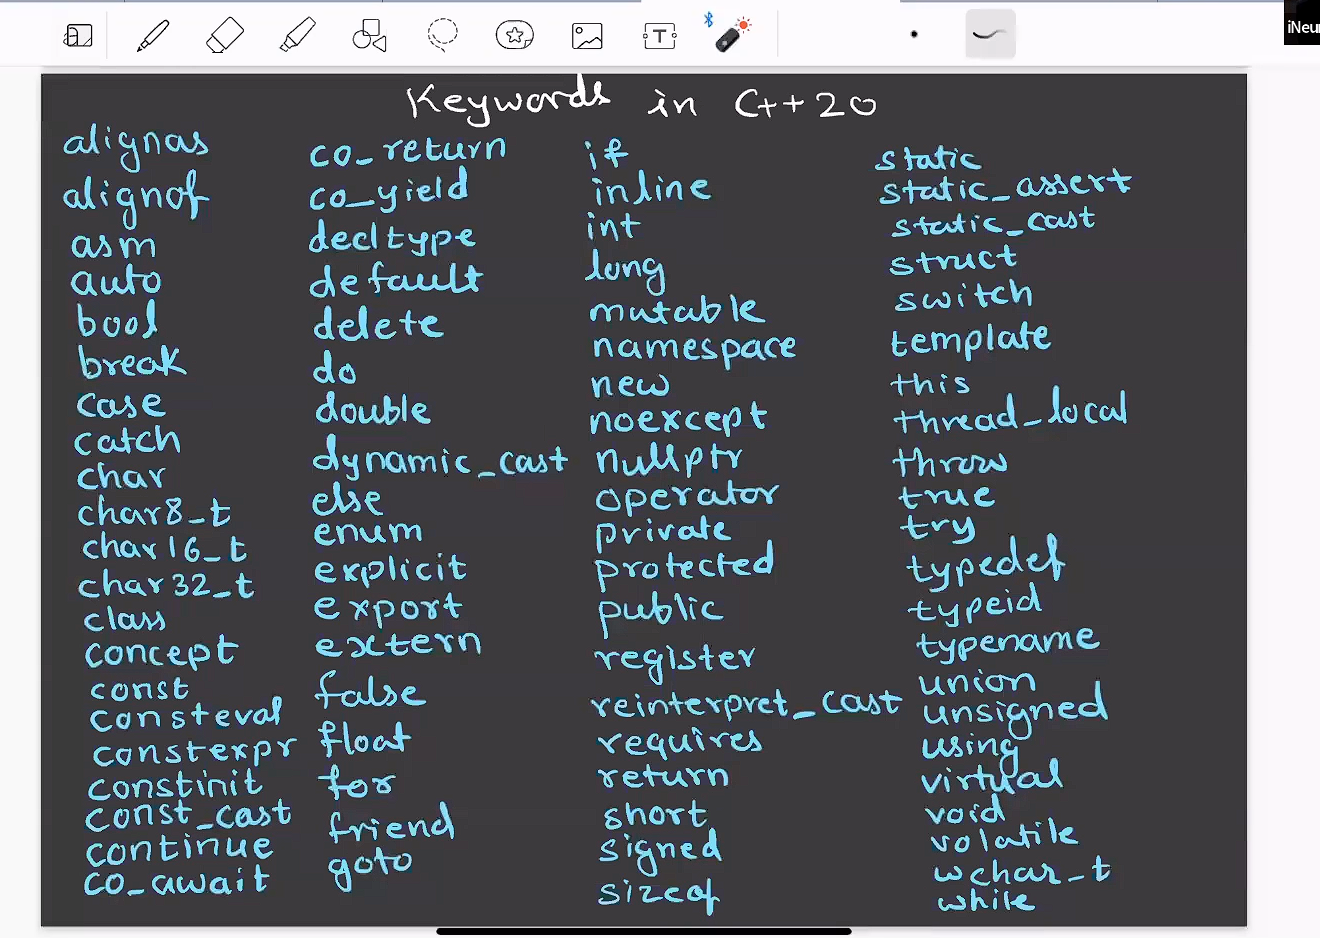 iNeur
Keywords in C++20
alignas
alignof
asm
auto
bool
break
case
catch
char
char8_t
char16_t
char32_t
class
concept
const
consteval
constexpr
constinit
const_cast
continue
co_await
co_return
co_yield
decltype
default
delete
do
double
dynamic_cast
else
enum
explicit
export
extern
false
float
for
friend
goto
if
inline
int
long
mutable
namespace
new
noexcept
nullptr
operator
private
protected
public
register
reinterpret_cast
requires
return
short
signed
sizeof
static
static_assert
static_cast
struct
switch
template
this
thread_local
throw
true
try
typedef
typeid
typename
union
unsigned
using
virtual
void
volatile
wchar_t
while